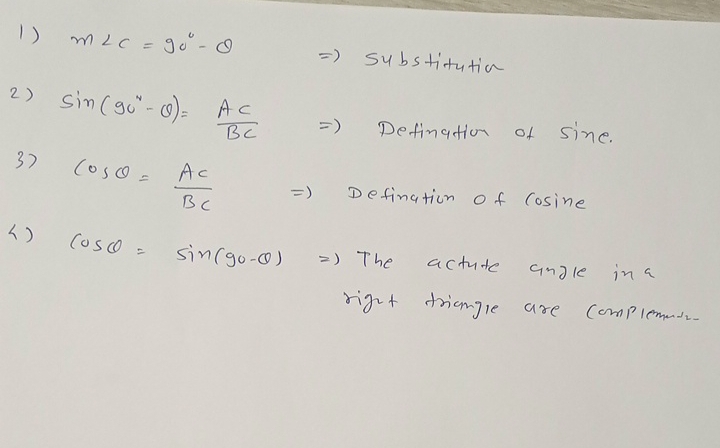 1) m∠C = 90° - θ => Substitution
2) Sin(90° - θ) = AC/BC => Defination of Sine.
3) Cosθ = AC/BC => Defination of Cosine
4) Cosθ = sin(90-θ) => The actute angle in a
right triangle are